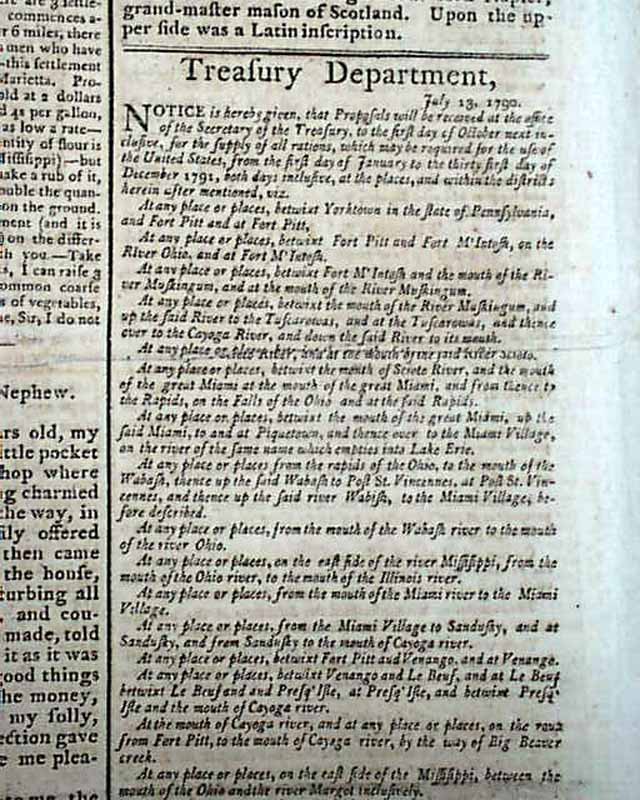 commences a-
r 6 miles, there
men who have
—this ſettlement
Marietta. Pro-
old at 2 dollars
d 4s per gallon,
as low a rate—
entity of flour is
Miſſiſippi)—but
make a rub of it,
ouble the quan-
on the ground.
ment (and it is
) on the differ-
h you.—Take
s, I can raiſe 3
ommon coarſe
s of vegetables,
e, Sir, I do not
Nephew.
rs old, my
ittle pocket
hop where
g charmed
the way, in
ily offered
then came
the houſe,
turbing all
, and cou-
made, told
it as it was
good things
he money,
my folly,
ection gave
e me plea-
grand-maſter maſon of Scotland. Upon the up-
per ſide was a Latin inſcription.
Treaſury Department,
July 13, 1790.
NOTICE is hereby given, that Propoſals will be received at the office
of the Secretary of the Treaſury, to the firſt day of October next in-
cluſive, for the ſupply of all rations, which may be required for the uſe of
the United States, from the firſt day of January to the thirty firſt day of
December 1791, both days incluſive, at the places, and within the diſtricts
herein after mentioned, viz.
At any place or places, betwixt Yorktown in the ſtate of Pennſylvania,
and Fort Pitt and at Fort Pitt,
At any place or places, betwixt Fort Pitt and Fort M'Intoſh, on the
River Ohio, and at Fort M'Intoſh.
At any place or places, betwixt Fort M'Intoſh and the mouth of the Ri-
ver Muſkingum, and at the mouth of the River Muſkingum.
At any place or places, betwixt the mouth of the River Muſkingum, and
up the ſaid River to the Tuſcarowas, and at the Tuſcarowas, and thence
over to the Cayoga River, and down the ſaid River to its mouth.
At any place or
At any place or places, betwixt the mouth of Sciote River, and the mouth
of the great Miami at the mouth of the great Miami, and from thence to
the Rapids, on the Falls of the Ohio and at the ſaid Rapids.
At any place or places, betwixt the mouth of the great Miami, up the
ſaid Miami, to and at Piquetown, and thence over to the Miami Village,
on the river of the ſame name which empties into Lake Erie.
At any place or places from the rapids of the Ohio, to the mouth of the
Wabaſh, thence up the ſaid Wabaſh to Poſt St. Vincennes, at Poſt St. Vin-
cennes, and thence up the ſaid river Wabaſh, to the Miami Village, be-
fore deſcribed.
At any place or places, from the mouth of the Wabaſh river to the mouth
of the river Ohio.
At any place or places, on the eaſt ſide of the river Miſſiſippi, from the
mouth of the Ohio river, to the mouth of the Illinois river.
At any place or places, from the mouth of the Miami river to the Miami
Village.
At any place or places, from the Miami Village to Sanduſky, and at
Sanduſky, and from Sanduſky to the mouth of Cayoga river.
At any place or places, betwixt Fort Pitt and Venango, and at Venango.
At any place or places, betwixt Venango and Le Beuf, and at Le Beuf
betwixt Le Beuf and and Preſq' Iſle, at Preſq' Iſle, and betwixt Preſq'
Iſle and the mouth of Cayoga river.
At the mouth of Cayoga river, and at any place or places, on the rout
from Fort Pitt, to the mouth of Cayoga river, by the way of Big Beaver
creek.
At any place or places, on the eaſt ſide of the Miſſiſippi, between the
mouth of the Ohio and the river Margot incluſively.